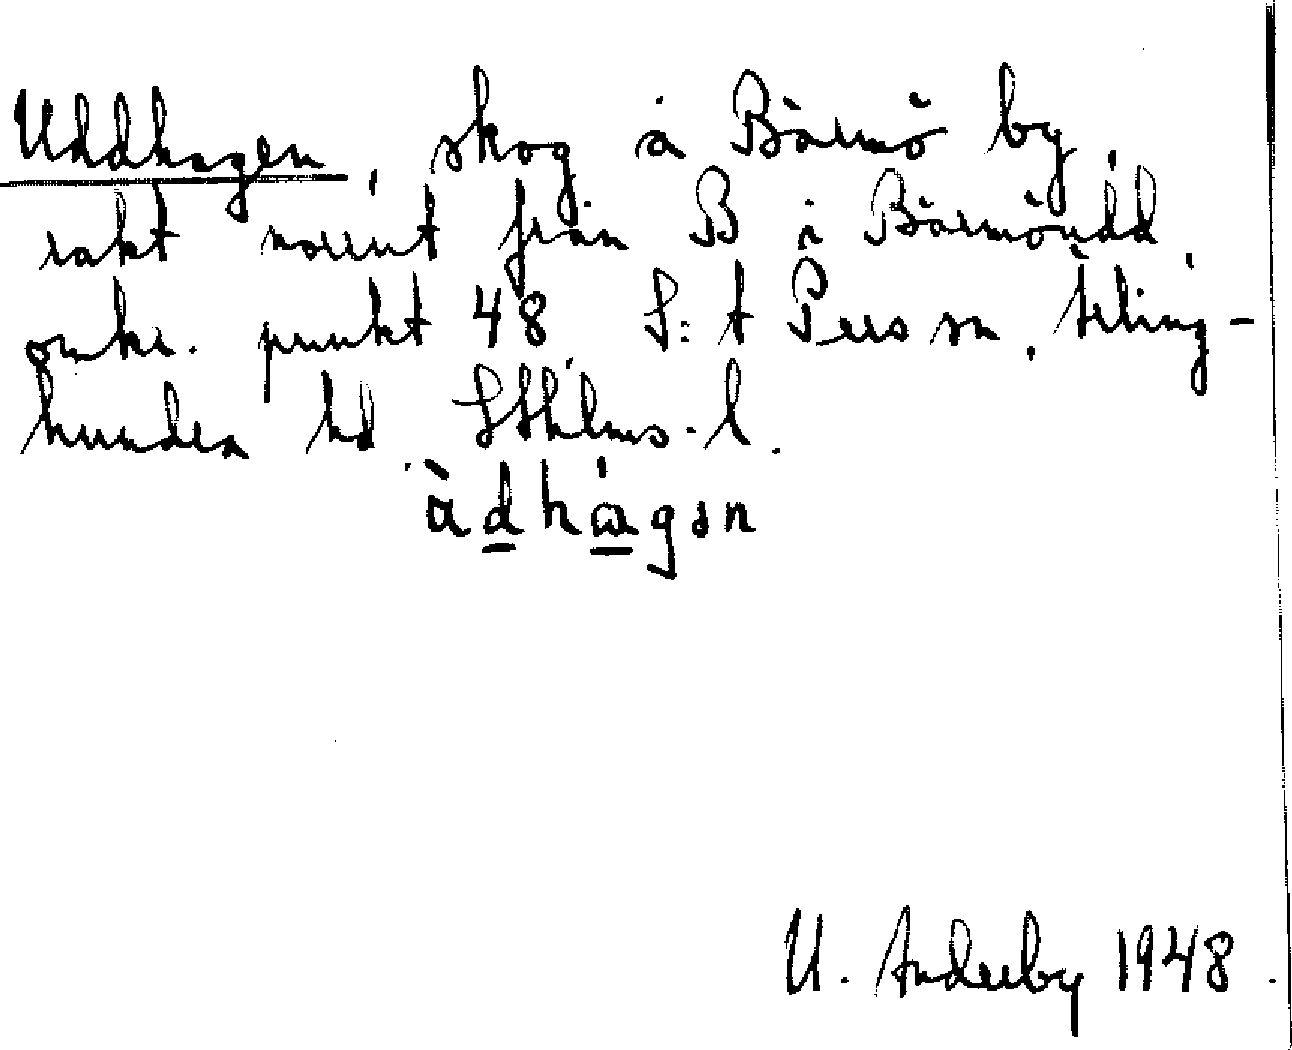 Uddhagen, skog å Bärmö by,
rakt norrut från B i Bärmöudd,
omkr. punkt 48, S:t Pers sn, Erling-
hundra hd, Sthlms.l.
U. Anderby 1948.